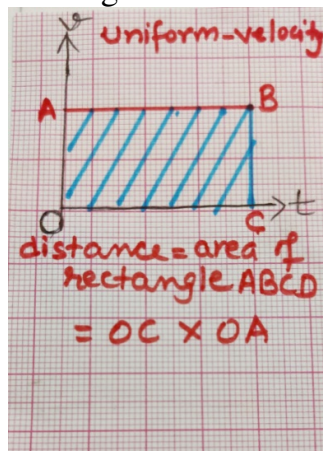 v
uniform-velocity
A
B
O
C
t
distance = area of
rectangle ABCD
= OC × OA